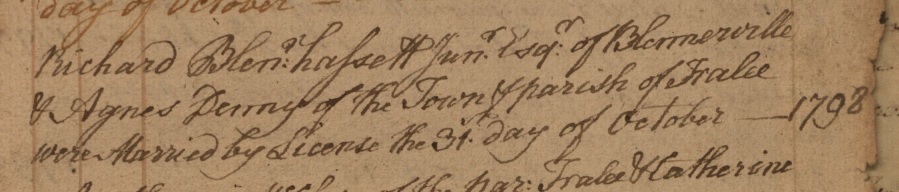 day of October —
Richard Blen.r hassett Jun.r Esq.r of Blennerville
& Agnes Denny of the Town & parish of Tralee
were Married by License the 31.st day of October — 1798
of the par: Tralee & Catherine